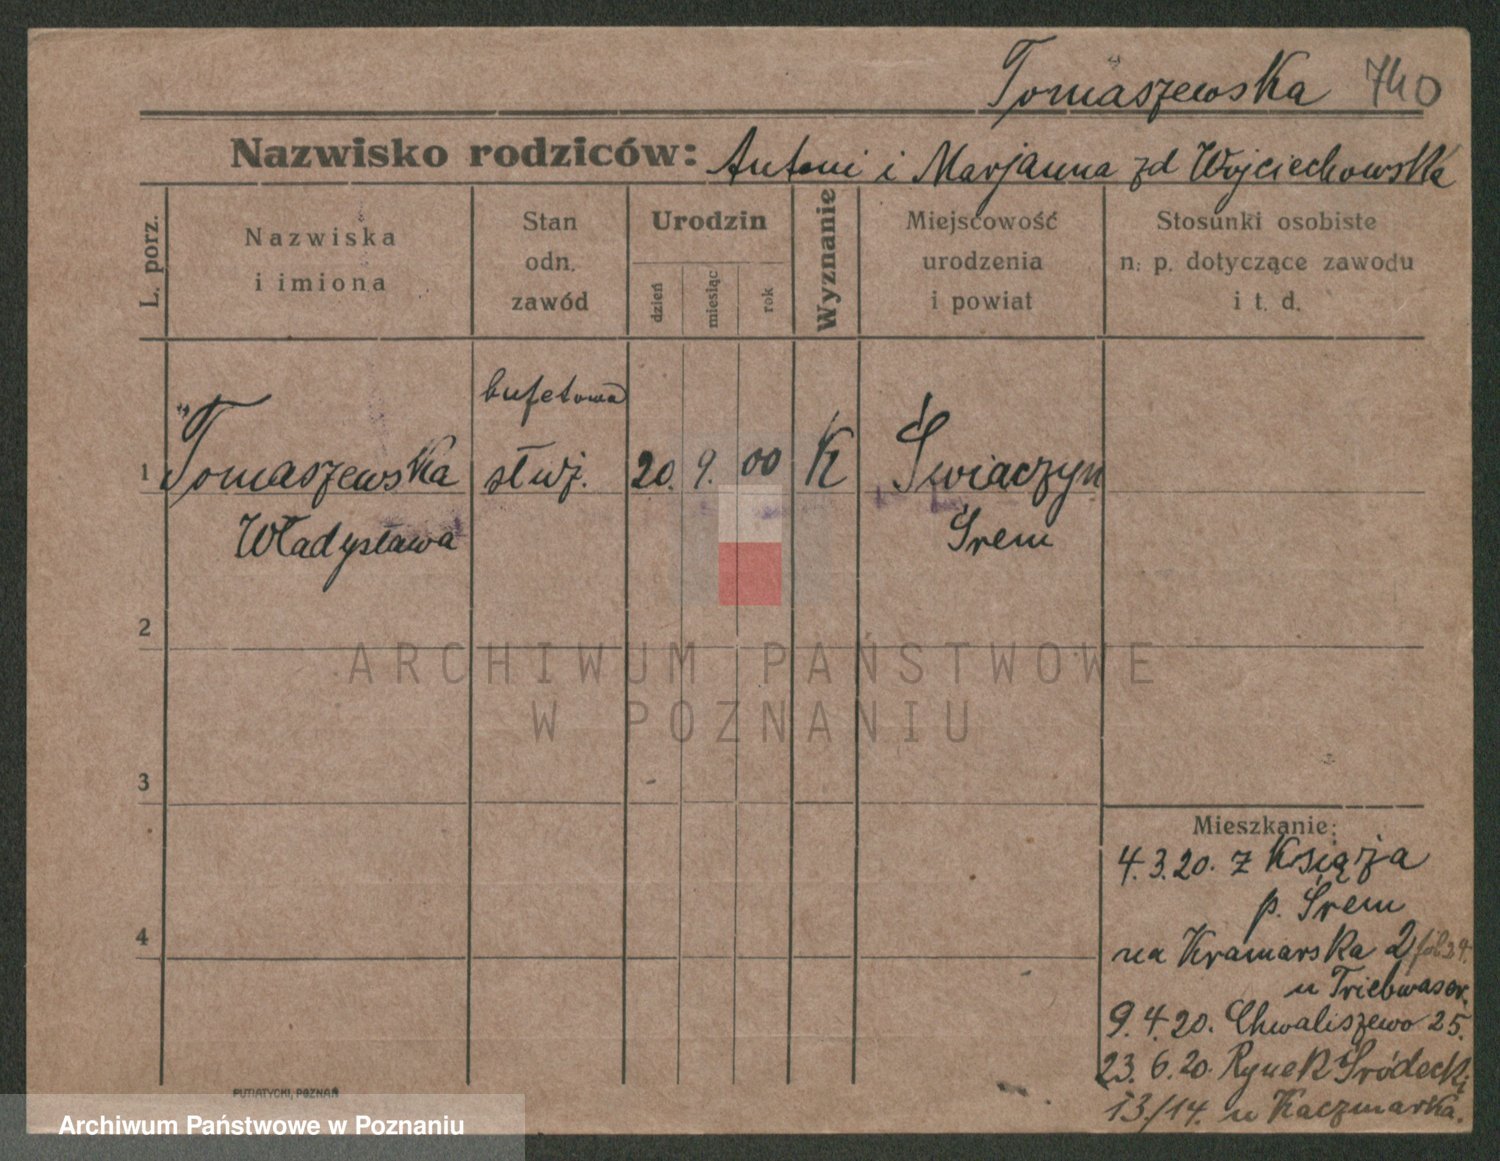 Tomaszewska 740
Nazwisko rodziców: Antoni i Marjanna zd Wojciechowska
L. porz.
Nazwiska
i imiona
Stan
odn.
zawód
Urodzin
dzień
miesiąc
rok
Wyznanie
Miejscowość
urodzenia
i powiat
Stosunki osobiste
n. p. dotyczące zawodu
i t. d.
bufetowa
1 Tomaszewska służ. 20. 9. 00 K Świaczyn
Władysława Śrem
2
ARCHIWUM PAŃSTWOWE
W POZNANIU
3
Mieszkanie:
4.3.20. z Książa
p. Śrem
4
na Kramarska 2
u Triebwasser.
9.4.20. Chwaliszewo 25.
23.6.20. Rynek Śródecki
13/14. u Kaczmarka.
PUTIATYCKI, POZNAŃ
Archiwum Państwowe w Poznaniu